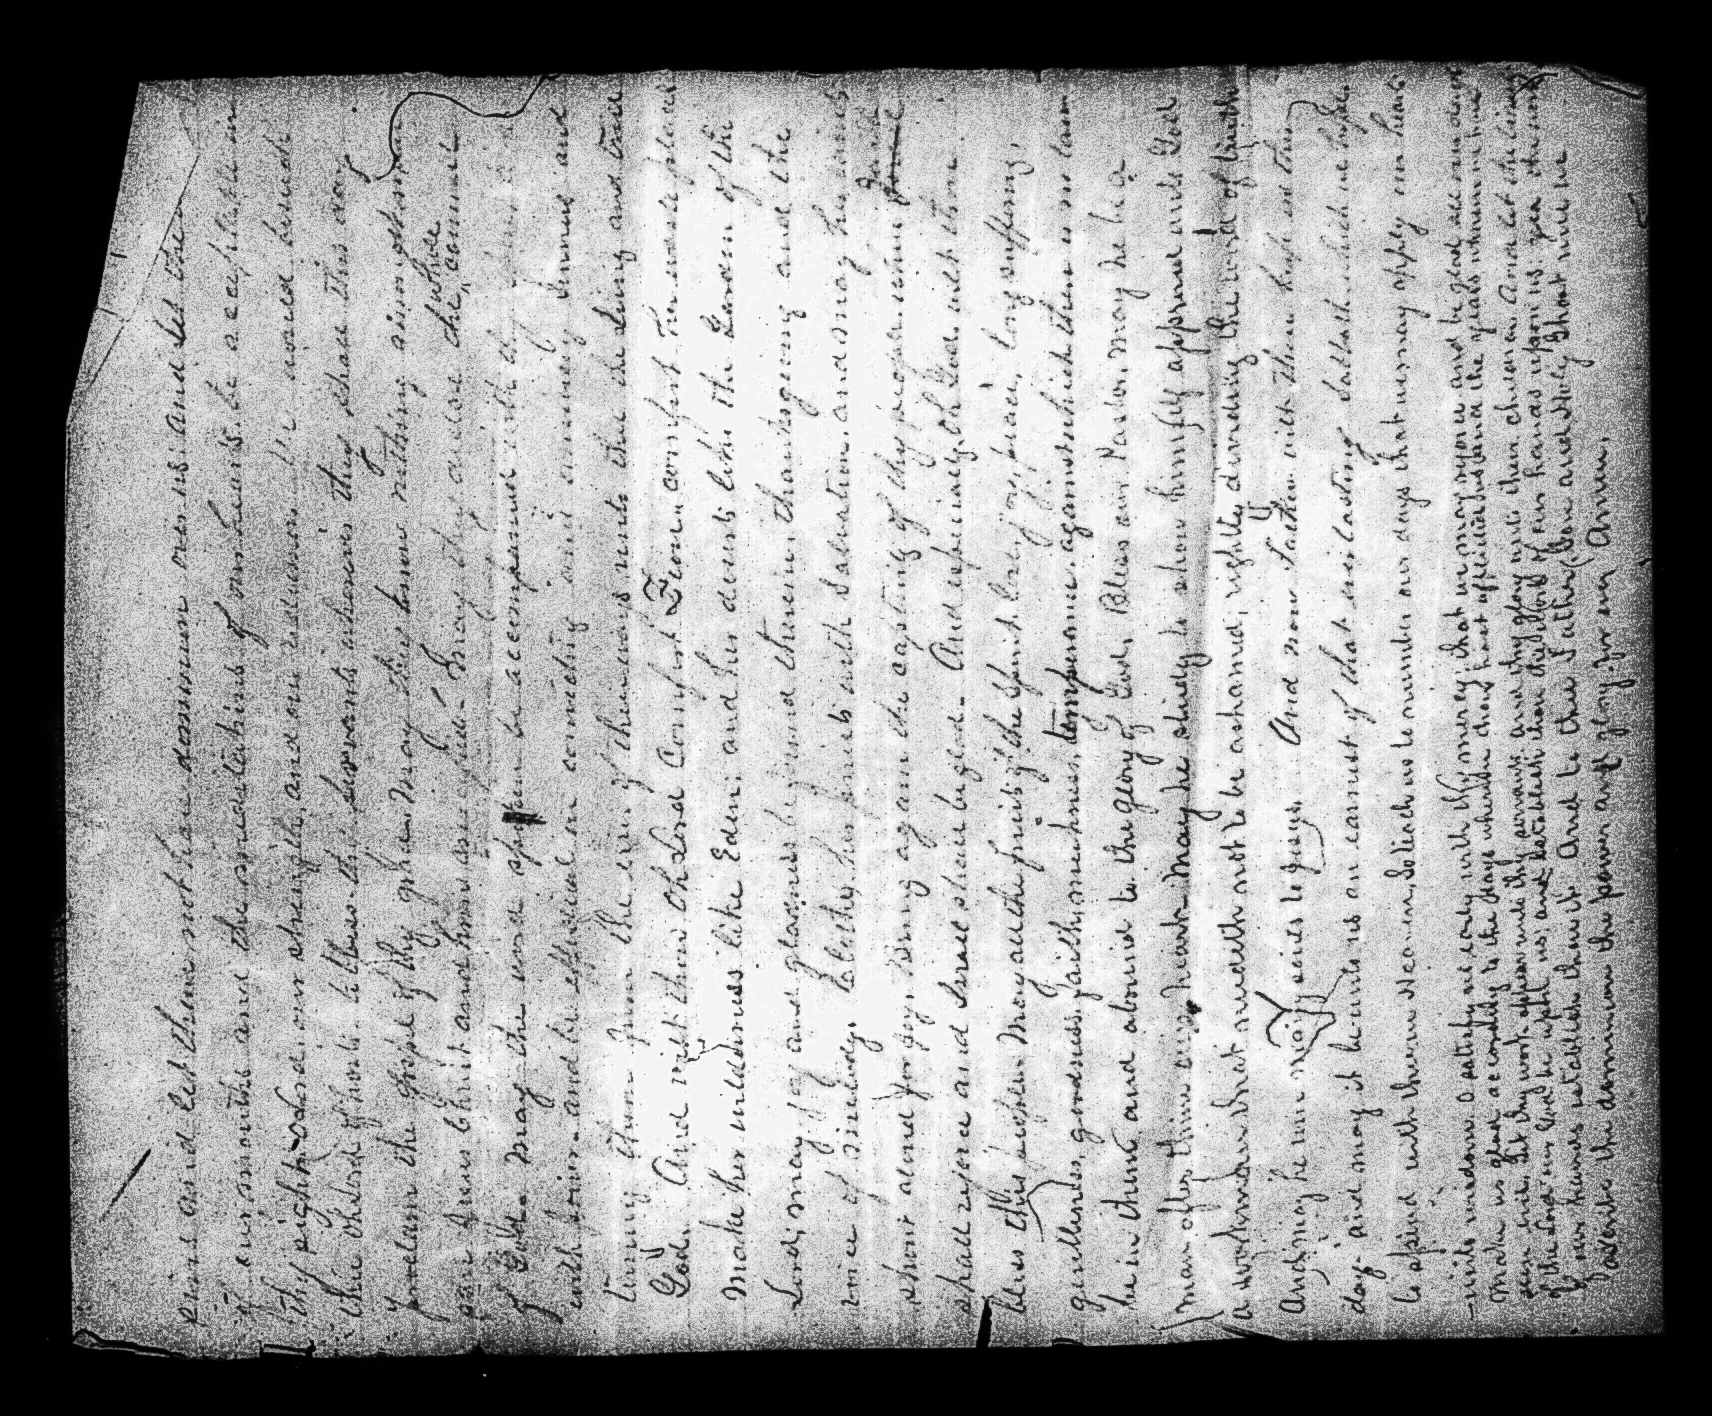 sins and let them not have dominion over us. and let the
of our mouths and the meditations of our hearts. be acceptable in
thy sight, oh Lord. our strength and our redeemer. We would humbly
thine of host. to bless thy servants whoever they shall this day
proclaim the gospel of thy grace. May they know nothing among them
save Jesus Christ and him crucified. May thy outdoe the, whole counsel
of God. May the word be accompanied with thy
with power. and be effectual in convicting and converting sinners and
turning them from the error of their ways unto thee the living and true
God. And wilt thou oh Lord Comfort Zion. comfort her waste places
make her wilderness like Eden: and her deserts like the Garden of the
Lord; may joy and gladness be found therein, thanksgiving and the
voice of melody. Clothe her priests with Salvation. and may her saints
shout aloud for joy. Bring again the captivity of thy people. when Jacob
shall rejoice and Israel shall be glad. And especially, oh God. wilt thou
bless this people. May all the fruits of the spirit, love, joy, peace, long suffering,
gentleness, goodness, faith, meekness, temperance. against which there is no law
be in them and abound to the glory of God. Bless our Pastor, may he be a
man after thine own heart. May he study to show himself approved unto God
a workman that needeth not to be ashamed, rightly dividing the word of truth
And may he win many souls to Jesus. And now Father wilt thou help us this
day. and may it be unto us an earnest of that everlasting Sabbath which we hope
to spend with thee in Heaven, So teach us to number our days that we may apply our hearts
unto wisdom. O satisfy us early with thy mercy, that we may rejoice and be glad all our days
Make us glad according to the days wherein thou hast afflicted us and the years wherein we have
seen evil, Let thy work appear unto thy servants and thy glory unto their children. And let the beauty
of the Lord our God be upon us; and establish thou the work of our hands upon us yea the work
of our hands establish thou it. And to thee Father, Son and Holy Ghost must we
ascribe the dominion the power and glory. for ever Amen.